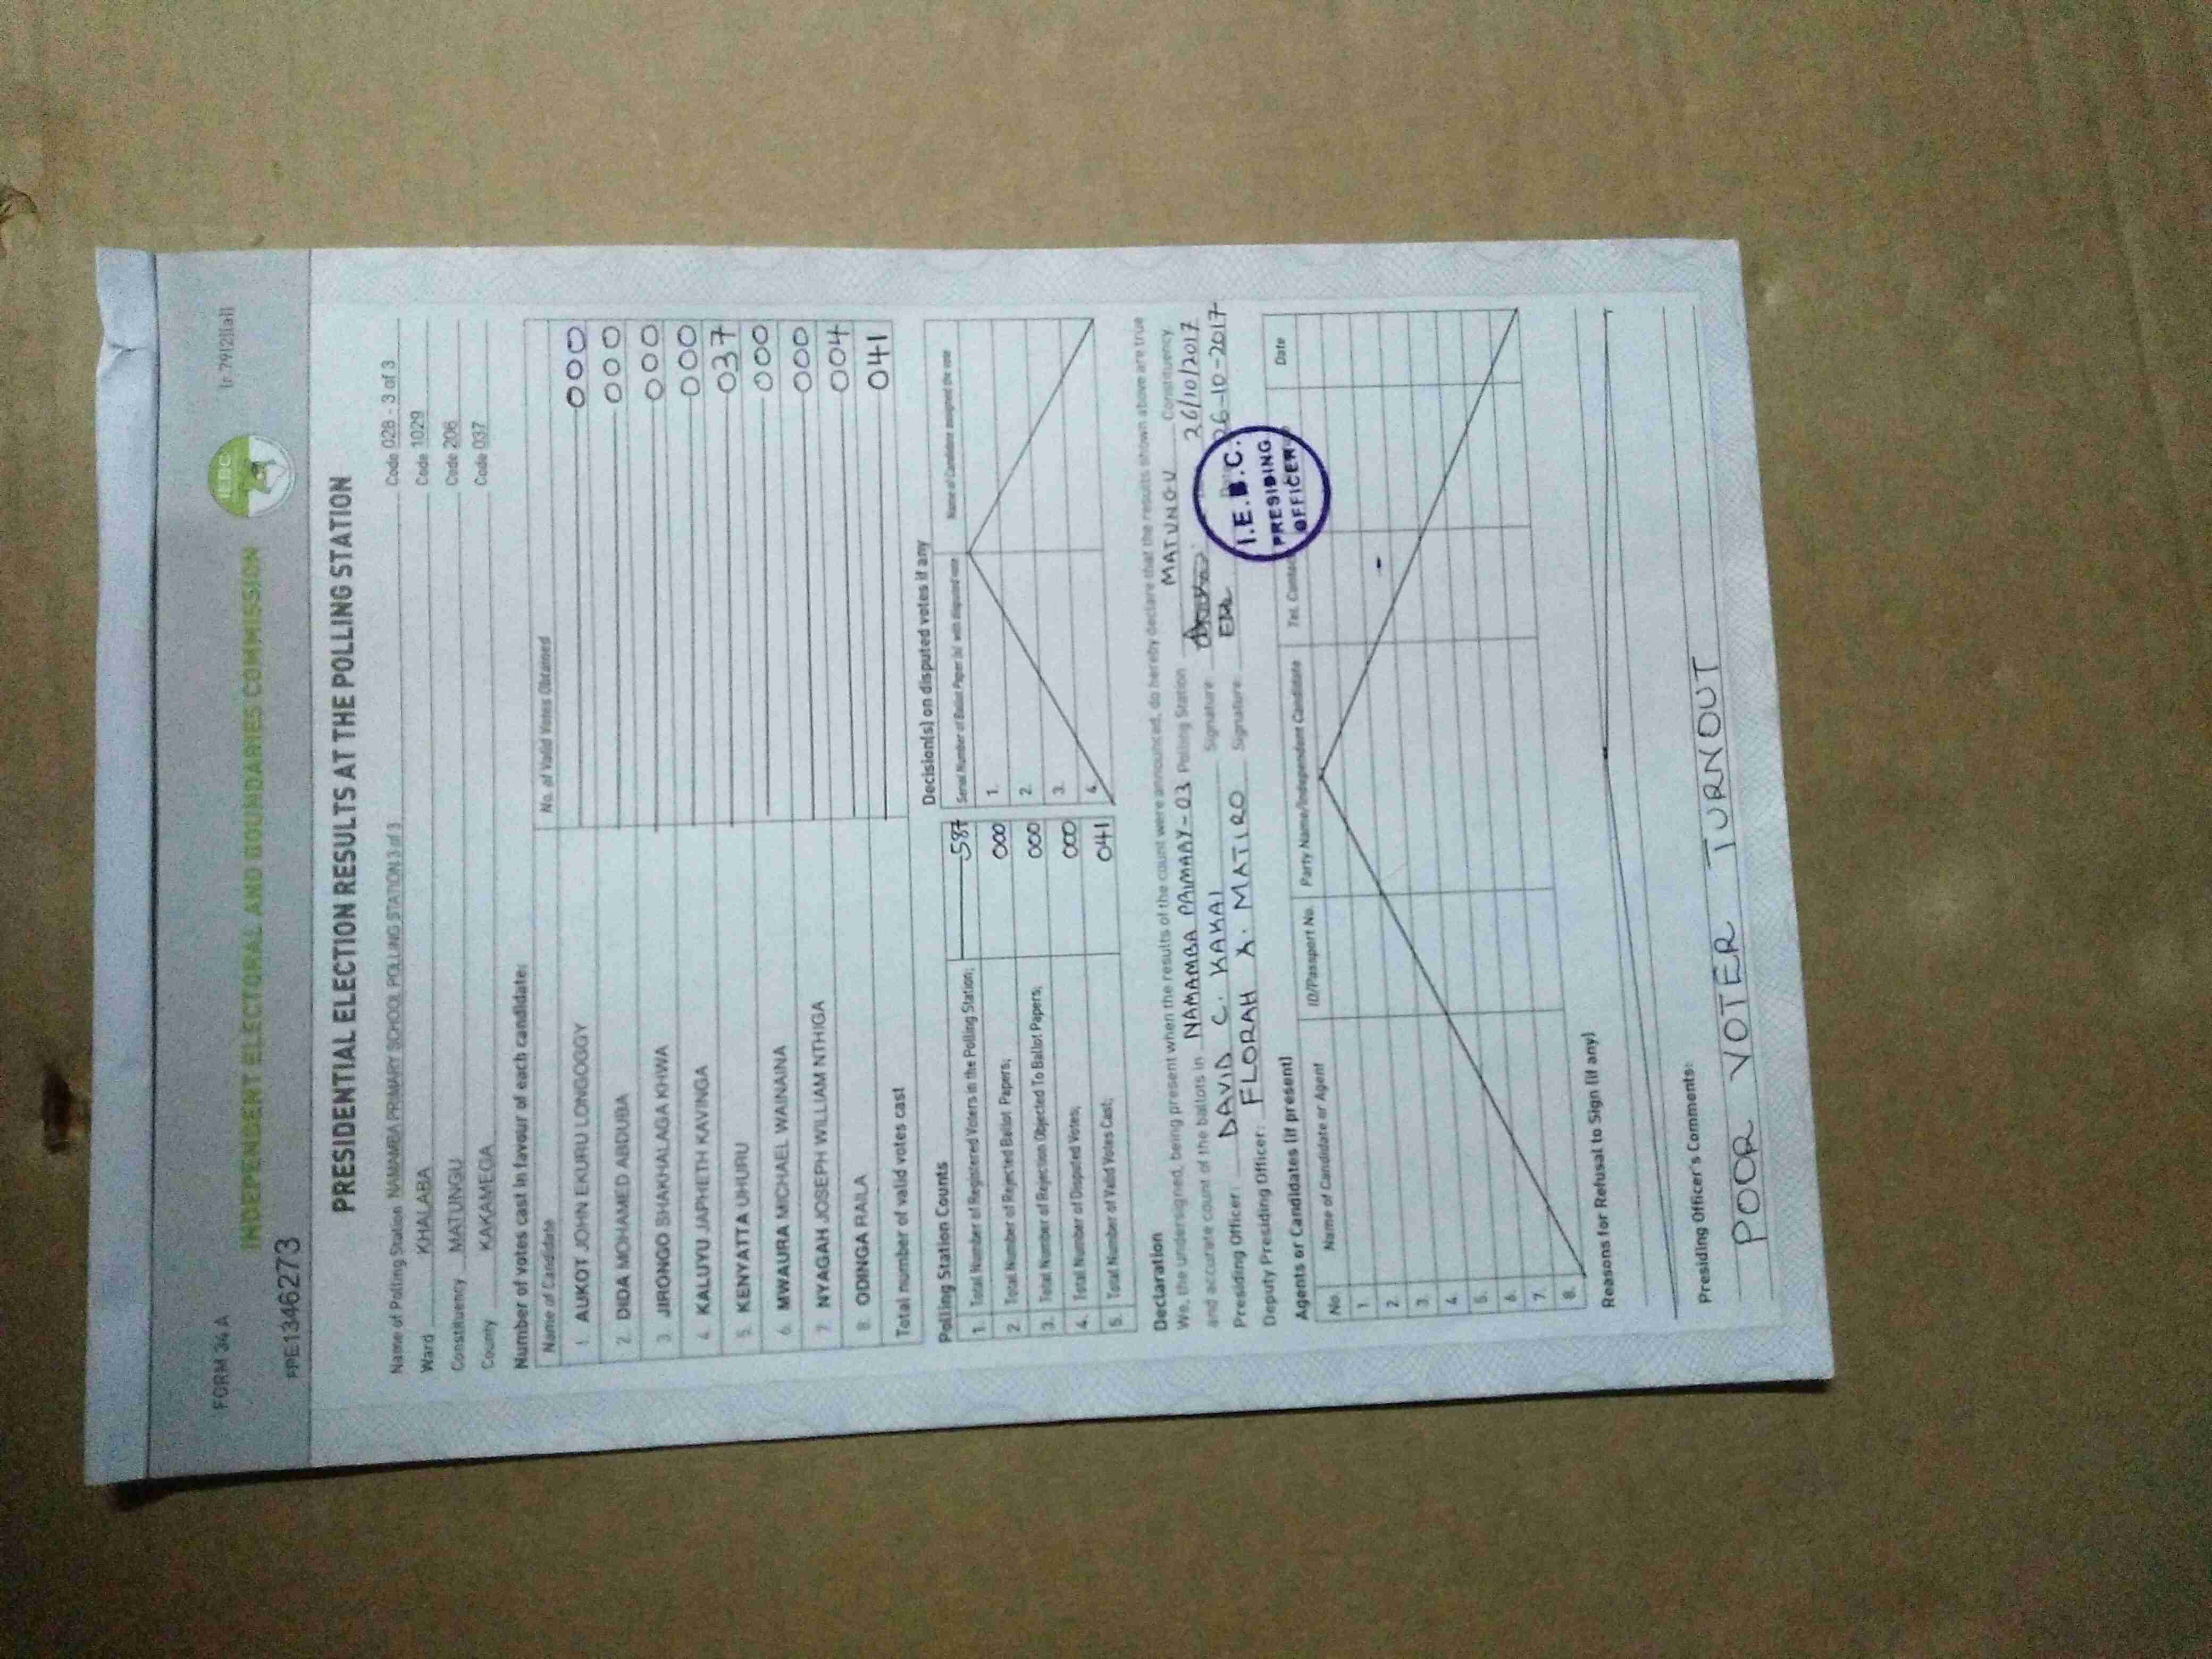 FORM 34A
(r.79(2)(a))
INDEPENDENT ELECTORAL AND BOUNDARIES COMMISSION
IEBC
PRE1346273
PRESIDENTIAL ELECTION RESULTS AT THE POLLING STATION
Name of Polling Station NAMAMBA PRIMARY SCHOOL POLLING STATION 3 of 3 Code 028 - 3 of 3
Ward KHALABA Code 1029
Constituency MATUNGU Code 206
County KAKAMEGA Code 037
Number of votes cast in favour of each candidate:
Name of Candidate No. of Valid Votes Obtained
1 AUKOT JOHN EKURU LONGOGGY 000
2 DIDA MOHAMED ABDUBA 000
3 JIRONGO SHAKHALAGA KHWA 000
4 KALUYU JAPHETH KAVINGA 000
5. KENYATTA UHURU 037
6 MWAURA MICHAEL WAINAINA 000
7 NYAGAH JOSEPH WILLIAM NTHIGA 000
8 ODINGA RAILA 004
Total number of valid votes cast 041
Polling Station Counts
1. Total Number of Registered Voters in the Polling Station; 587
2. Total Number of Rejected Ballot Papers; 000
3. Total Number of Rejection Objected To Ballot Papers; 000
4. Total Number of Disputed Votes; 000
5. Total Number of Valid Votes Cast; 041
Decision(s) on disputed votes if any
Serial Number of Ballot Paper (s) with disputed vote Name of Candidate assigned the vote
1.
2.
3.
4.
Declaration
We, the undersigned, being present when the results of the count were announced, do hereby declare that the results shown above are true
and accurate count of the ballots in NAMAMBA PRIMARY-03 Polling Station MATUNGU Constituency
Presiding Officer: DAVID C. KAKAI Signature: 26/10/2017
Deputy Presiding Officer: FLORAH X. MATIRO Signature: 26-10-2017
I.E.B.C.
PRESIDING
OFFICER
Agents or Candidates (if present)
No. Name of Candidate or Agent ID/Passport No. Party Name/Independent Candidate Tel. Contact Date
1.
2.
3.
4.
5.
6.
7.
8.
Reasons for Refusal to Sign (if any)
Presiding Officer's Comments:
POOR VOTER TURNOUT